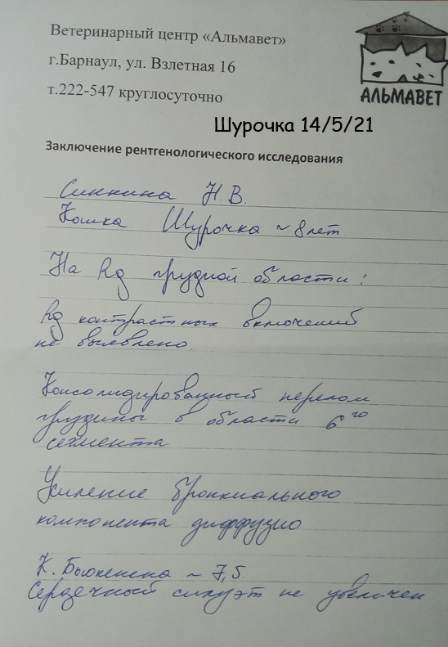 Ветеринарный центр «Альмавет»
г.Барнаул, ул. Взлетная 16
т.222-547 круглосуточно
АЛЬМАВЕТ
Шурочка 14/5/21
Заключение рентгенологического исследования
Синкина Н В.
Кошка Шурочка ~ 8 лет
На Rg грудной области:
Rg контрастных включений
не выявлено.
Консолидированный перелом
грудины в области 6го
сегмента
Усиление бронхиального
компонента диффузно
К. Бьюкенена ~ 7,5
Сердечный силуэт не увеличен